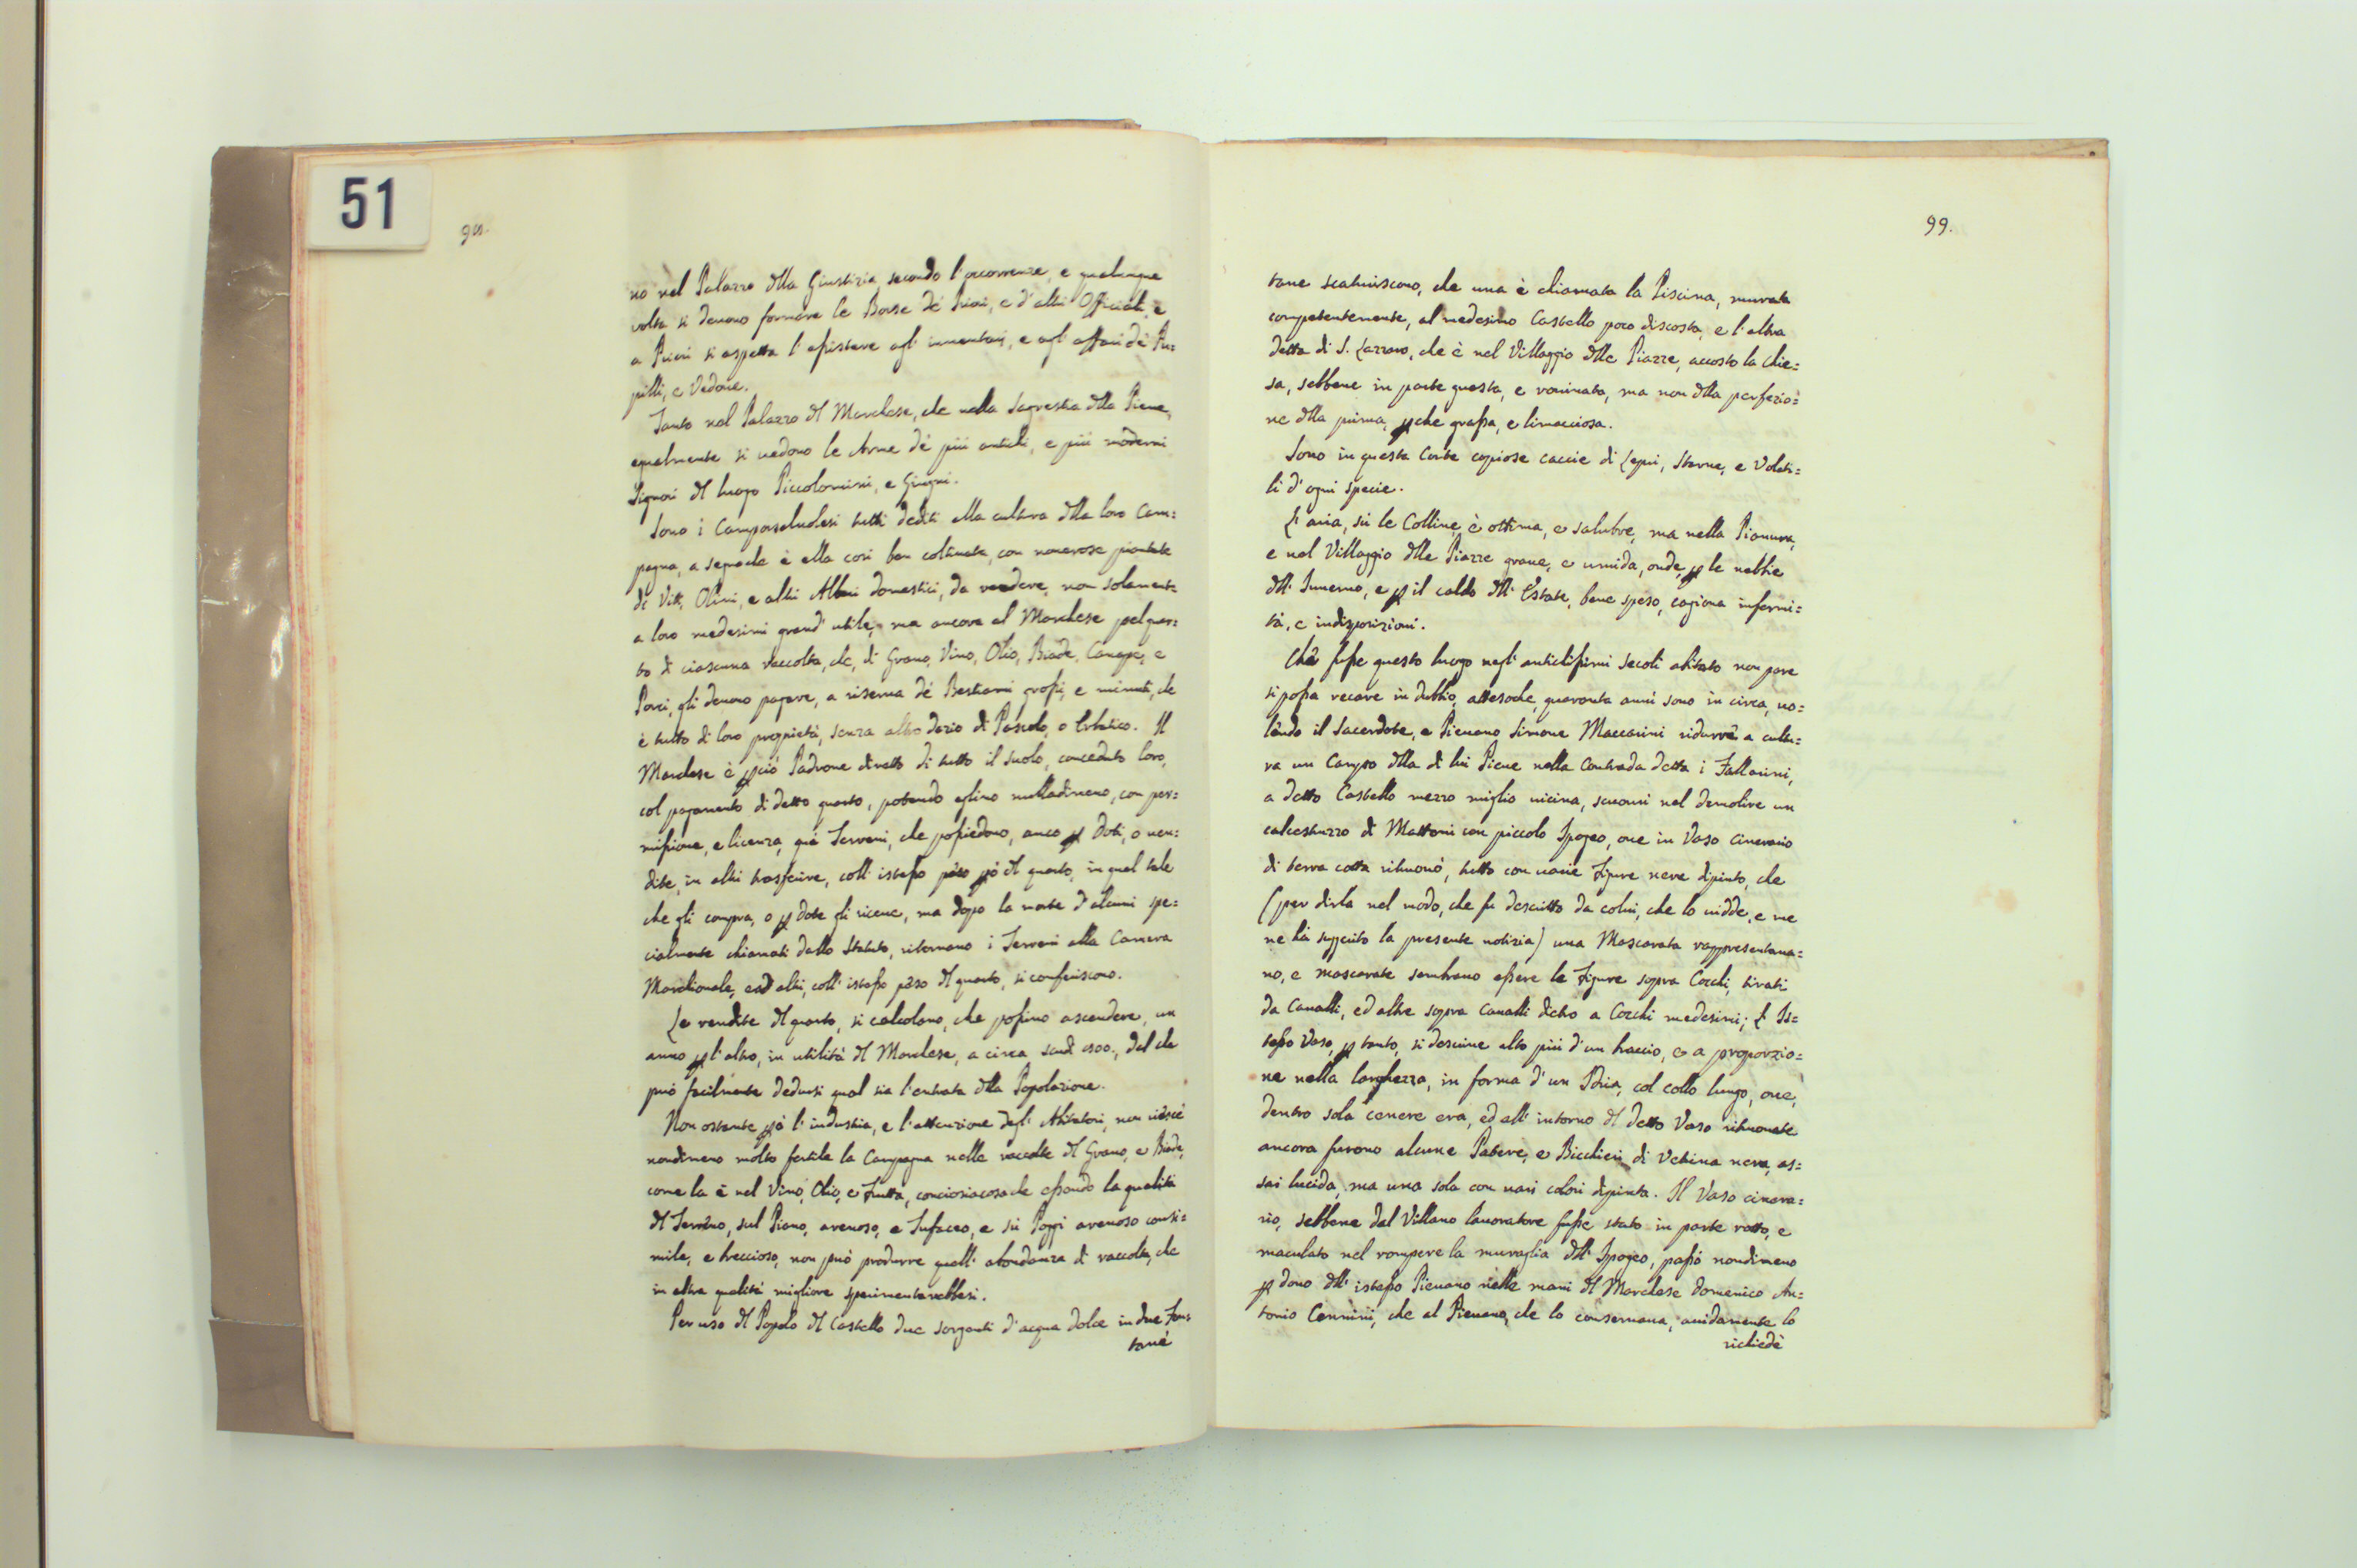 51
98.
no nel Palazzo dlla Giustizia, secondo l'occorrenze, e qualunque
volta si deuono formare le Borse de' Priori, e d'altri Officiali, e
a Priori si aspetta l'assistere agl'inuentarj, e agl'affari de' Pu=
pilli, e Vedoue.
Tanto nel Palazzo dl Marchese, che nella Sagrestia dlla Pieue,
egualmente si uedono le Arme de' più antichi, e più moderni
Signori dl luogo Piccolomini, e Giugni.
Sono i Camporseluolesi tutti dediti alla cultura dlla loro Cam=
pagna, a segno che è ella così ben coltiuata, con numerose piantate
di Viti, Oliui, e altri Alberi domestici, da rendere, non solamente
a loro medesimi grand'utile, ma ancora al Marchese pel quar=
to di ciascuna raccolta, che, di Grano, Vino, Olio, Biade, Canape, e
Porci, gli deuono pagare, a riserua de' Bestiami grossi, e minuti, che
è tutto di loro proprietà, senza altro dazio di Pascolo, o Erbatico. Il
Marchese è pciò Padrone diretto di tutto il suolo, conceduto loro,
col pagamento di detto quarto, potendo eglino nulladimeno, con per=
missione, e licenza, què Terreni, che possiedono, anco p doti, o uen=
dite, in altri trasferire, coll'istesso peso pò dl quarto, in quel tale
che gli compra, o p dote gli riceue, ma dopo la morte d'alcuni spe=
cialmente chiamati dallo Statuto, ritornano i Terreni alla Camera
Marchionale, e ad altri, coll'istesso peso dl quarto, si conferiscono.
Le rendite dl quarto, si calcolano, che possino ascendere, un
anno p l'altro, in utilità dl Marchese, a circa scudi 1500., dal che
può facilmente dedursi qual sia l'entrata dlla Popolazione.
Non ostante pò l'industria, e l'attenzione degl'Abitatori, non riesce
nondimeno molto fertile la Campagna nelle raccolte dl Grano, e Biade,
come la è nel Vino, Olio, e Frutta, conciosiacosache essendo la qualità
dl Terreno, sul Piano, arenoso, e Tufaceo, e sù Poggi arenoso consi=
mile, e breccioso, non può produrre quell'abondanza di raccolta, che
in altra qualità migliore sperimenterebbesi.
Per uso dl Popolo dl Castello due sorgenti d'acqua dolce in due Fon=
tane
99.
tane scaturiscono, che una è chiamata la Piscina, murata
competentemente, al medesimo Castello poco discosta, e l'altra
detta di S. Lazzaro, che è nel Villaggio dlle Piazze, accosto la Chie=
sa, sebbene in parte guasta, e rouinata, ma non dlla perfezio=
ne dlla prima, pche grassa, e limacciosa.
Sono in questa Corte copiose caccie di Lepri, Starne, e Volati=
li d'ogni specie.
L'aria, sù le Colline, è ottima, e salubre, ma nella Pianura,
e nel Villaggio dlle Piazze graue, e umida, onde, p le nebbie
dll'Inuerno, e p il caldo dll'Estate, bene speso, cagiona infermi=
tà, e indisposizioni.
Che fusse questo luogo negl'antichissimi secoli abitato non pare
si possa recare in dubbio, attesoche, quaranta anni sono in circa, uo=
lendo il Sacerdote, e Pieuano Simone Maccarini ridurre a cultu=
ra un Campo dlla di lui Pieue nella Contrada detta i Fallarini,
a detto Castello mezzo miglio uicina, scuoprì nel demolire un
calcestruzzo di Mattoni con piccolo Ipogeo, oue in Vaso cinerario
di terra cotta ritrouò, tutto con uarie Figure nere dipinto, che
(per dirla nel modo, che fu descritto da colui, che lo uidde, e me
ne hà suggerito la presente notizia) una Mascarata rappresentaua=
no, e mascarate sembrano essere le Figure sopra Cocchi, tirati
da Caualli, ed altre sopra Caualli dietro a Cocchi medesimi; L'Is=
tesso Vaso, p tanto, si descriue alto più d'un braccio, e a proporzio=
ne nella larghezza, in forma d'un Idria, col collo lungo, oue,
dentro sola cenere era, ed all'intorno dl detto Vaso ritrouate
ancora furono alcune Patere, e Bicchieri di Vetrina nera, as=
sai lucida, ma una sola con uari colori dipinta. Il Vaso cinera=
rio, sebbene dal Villano lauoratore fusse stato in parte rotto, e
maculato nel rompere la muraglia dll'Ipogeo, passò nondimeno
p dono dll'istesso Pieuano nelle mani dl Marchese Domenico An=
tonio Cennini, che al Pieuano, che lo conseruaua, auidamente lo
richiede